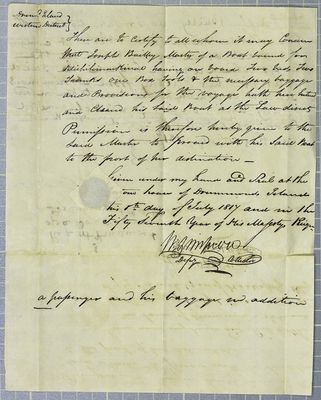 Drumd. Island
Western District }
These are to Certify to all whom it may Concern
that Joseph Bailly Master of a Boat bound for
Michilimackinac having on board Two beds Two
Trunks one Box Tools & the necessary baggage
and Provisions for the voyage hath here entered
and Cleared his said Boat as the Law directs
Permission is therefore hereby given to the
Said Master to proceed with his Said Boat
to the port of her destination —
Given under my hand and Seal at the
house of Drummonds Island
this 8th day of July 1817 and in the
Fifty Seventh Year of His Majestys Reign
Depy Collector
a passenger and his baggage in addition